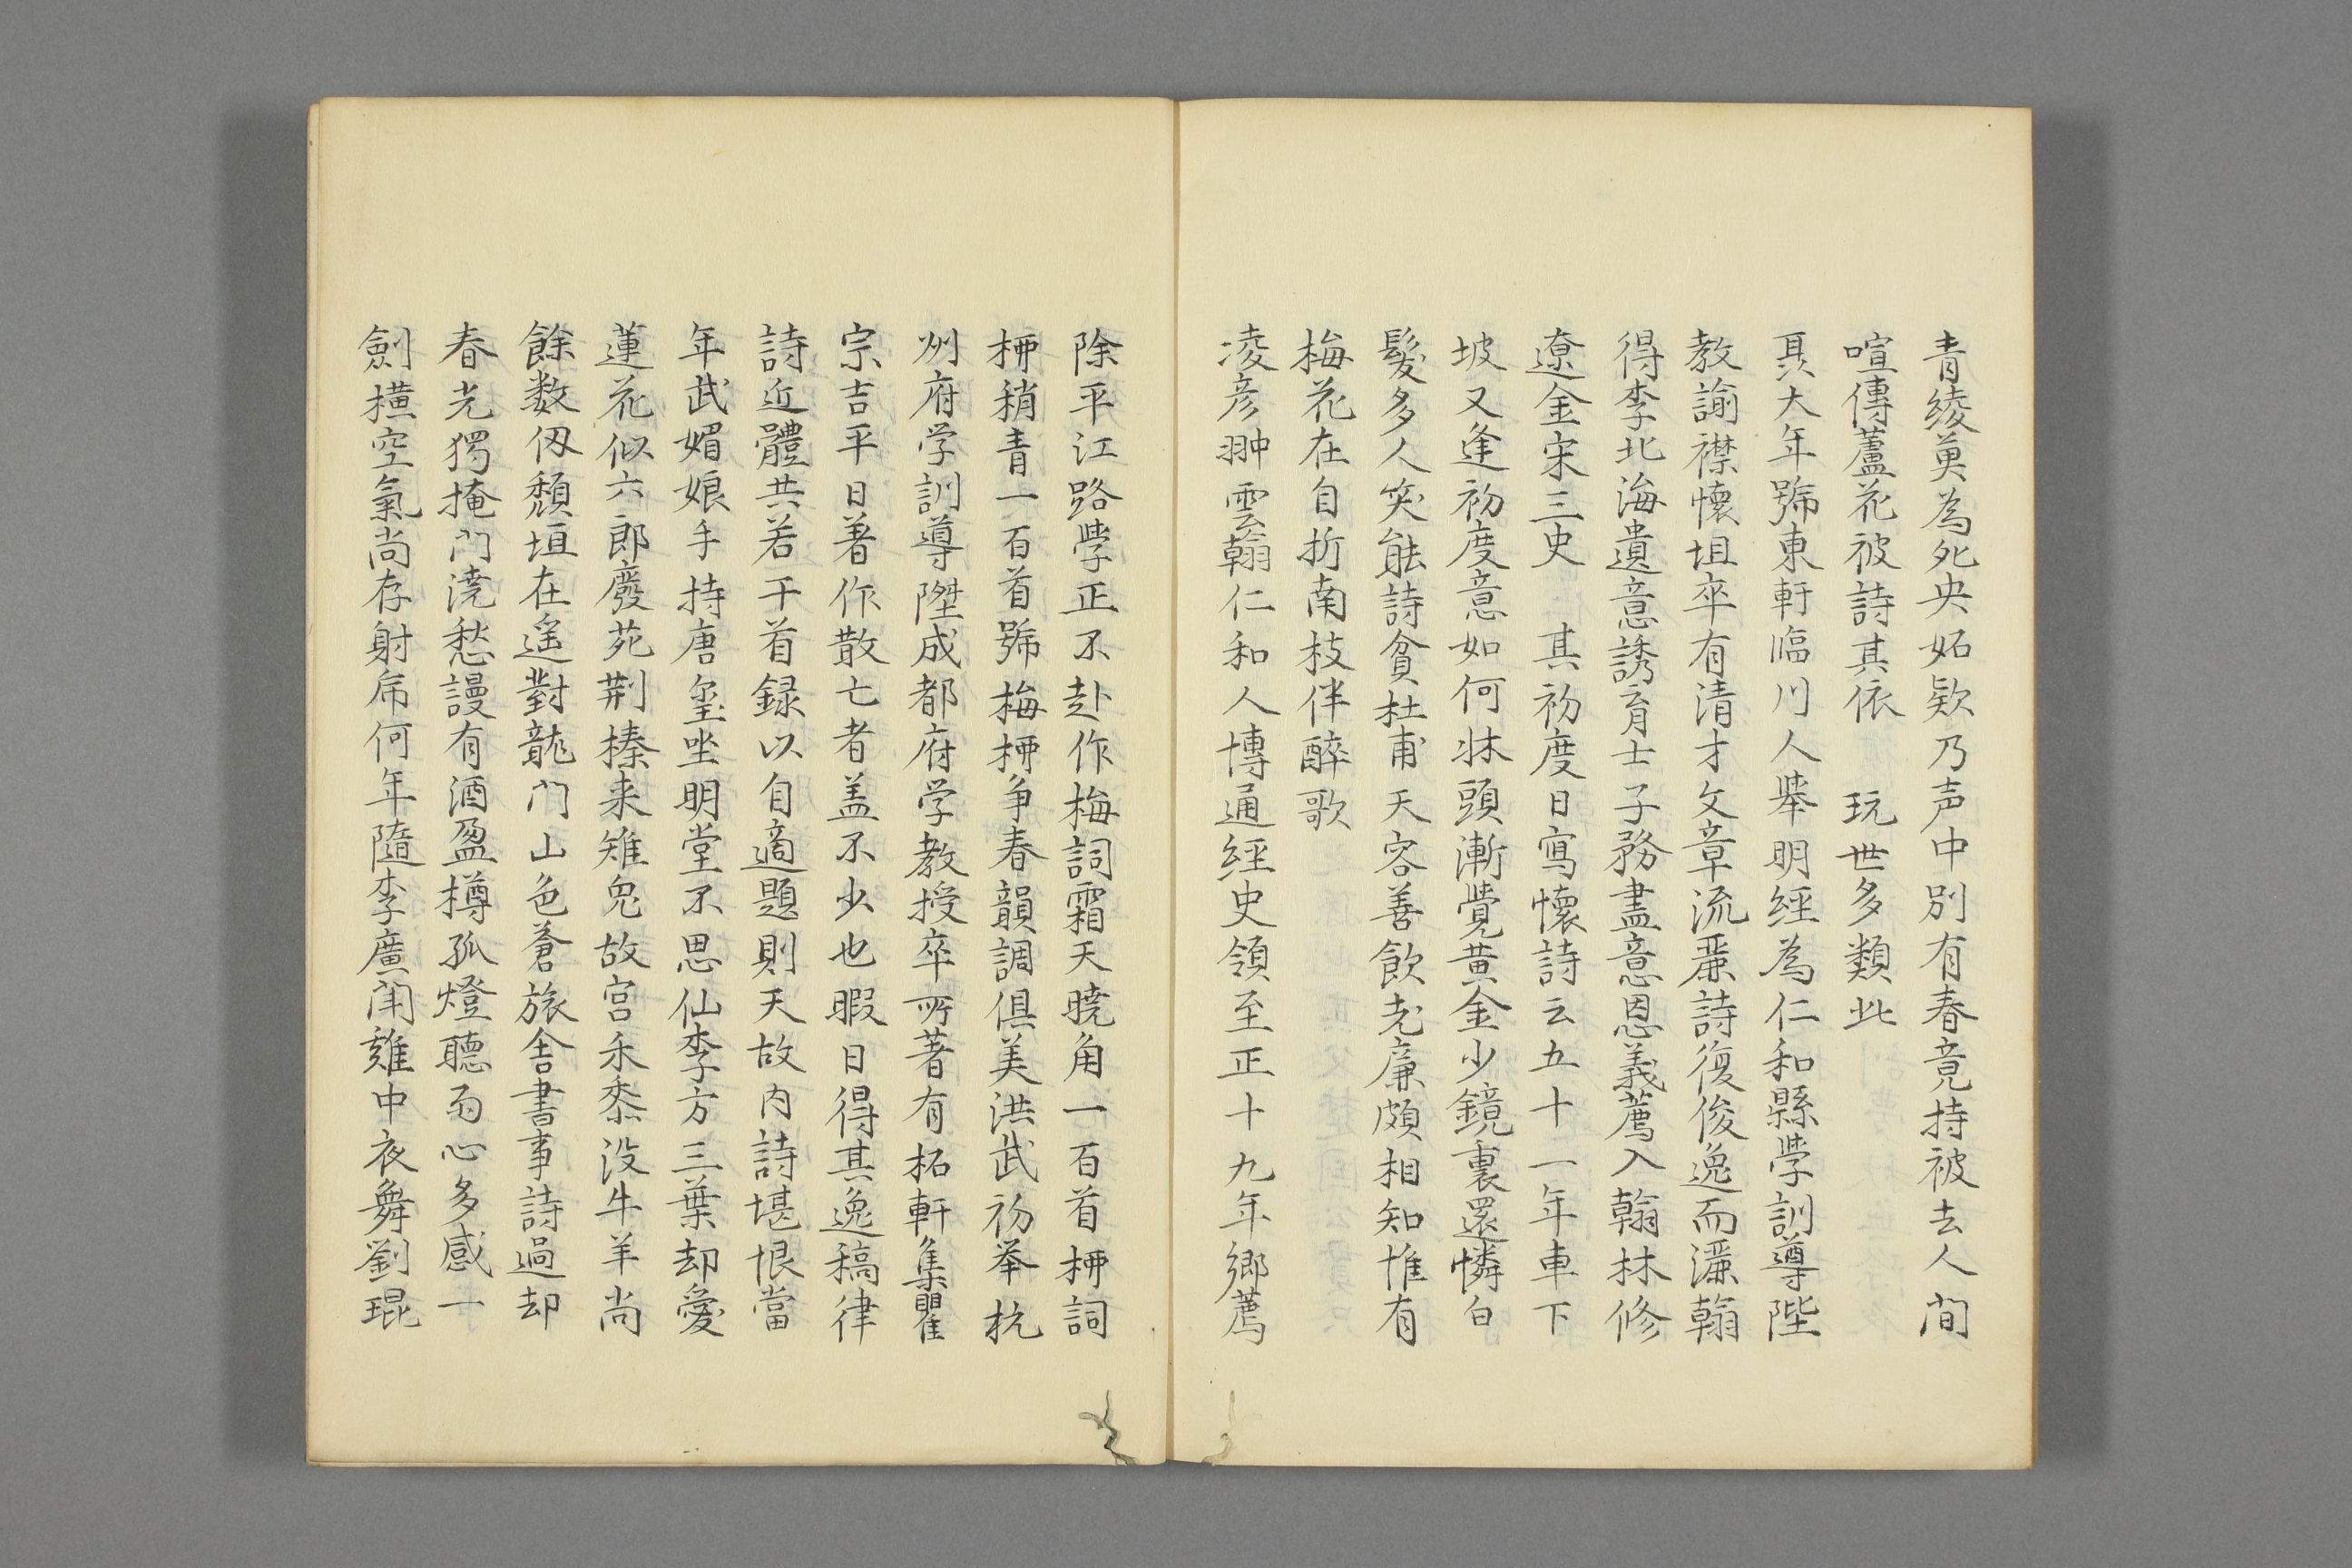 青綾莫為死央妬欵乃声中別有春竟持被去人間
喧傳蘆花被詩其依　玩世多類此
聂大年號東軒臨川人舉明經為仁和縣學訓導陞
教諭襟懷坦率有清才文章流麗詩復俊逸而濂翰
得李北海遺意誘育士子務盡意恩義薦入翰林修
遼金宋三史　其初度日寫懷詩云五十一年車下
坡又逢初度意如何牀頭漸覺黃金少鏡裏還憐白
髮多人笑能詩貧杜甫天容善飲老廉頗相知惟有
梅花在自折南枝伴醉歌
凌彥翀雲翰仁和人博通經史領至正十九年鄉薦
除平江路學正不赴作梅詞霜天曉角一百首栁詞
栁稍青一百首號梅栁争春韻調俱美洪武初舉杭
州府学訓導陞成都府学教授卒所著有柘軒集瞿
宗吉平日著作散亡者盖不少也暇日得其逸稿律
詩近體共若干首録以自適題則天故内詩堪恨當
年武媚娘手持唐璽坐明堂不思仙李方三葉却愛
蓮花似六郎廢苑荆榛来雉兔故宫禾黍没牛羊尚
餘数仭頹垣在遥對龍门山色蒼旅舍書事詩過却
春光獨掩门澆愁謾有酒盈樽孤燈聽雨心多感一
劍橫空氣尚存射席何年隨李廣闻雞中夜舞劉琨